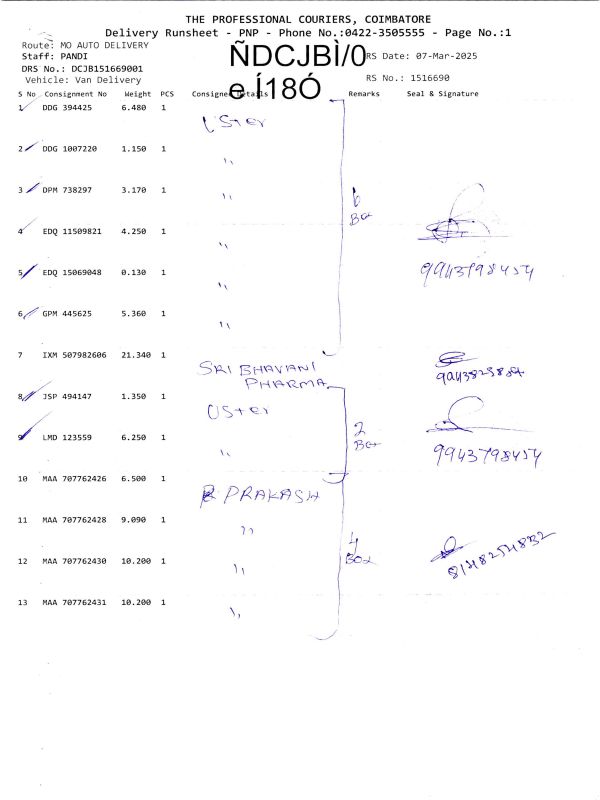 THE PROFESSIONAL COURIERS, COIMBATORE
Delivery Runsheet - PNP - Phone No.:0422-3505555 - Page No.:1
Route: MO AUTO DELIVERY
Staff: PANDI
DRS No.: DCJB151669001
Vehicle: Van Delivery
ÑDCJBÌ/0
e Í18Ó
RS Date: 07-Mar-2025
RS No.: 1516690
S No Consignment No Weight PCS Consignee Details Remarks Seal & Signature
1 DDG 394425 6.480 1 Uster
2 DDG 1007220 1.150 1 ,,
3 DPM 738297 3.170 1 ,,
6
Box
4 EDQ 11509821 4.250 1 ,,
5 EDQ 15069048 0.130 1 ,, 9943798454
6 GPM 445625 5.360 1 ,,
7 IXM 507982606 21.340 1 SRI BHAVANI
PHARMA
8 JSP 494147 1.350 1 Uster
2
Box
9 LMD 123559 6.250 1 ,, 9943798454
10 MAA 707762426 6.500 1 PRAKASH
11 MAA 707762428 9.090 1 ,,
4
Box
12 MAA 707762430 10.200 1 ,, 8148254832
13 MAA 707762431 10.200 1 ,,